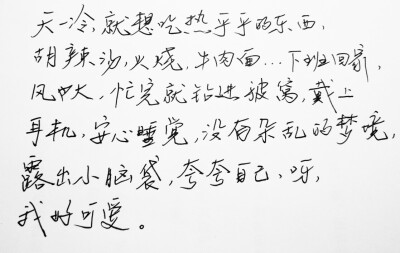 天一冷,就想吃热乎乎的东西,
胡辣汤,火烧,牛肉面…下班回家,
风大,忙完就钻进被窝,戴上
耳机,安心睡觉,没有杂乱的梦境,
露出小脑袋,夸夸自己,呀,
我好可爱。